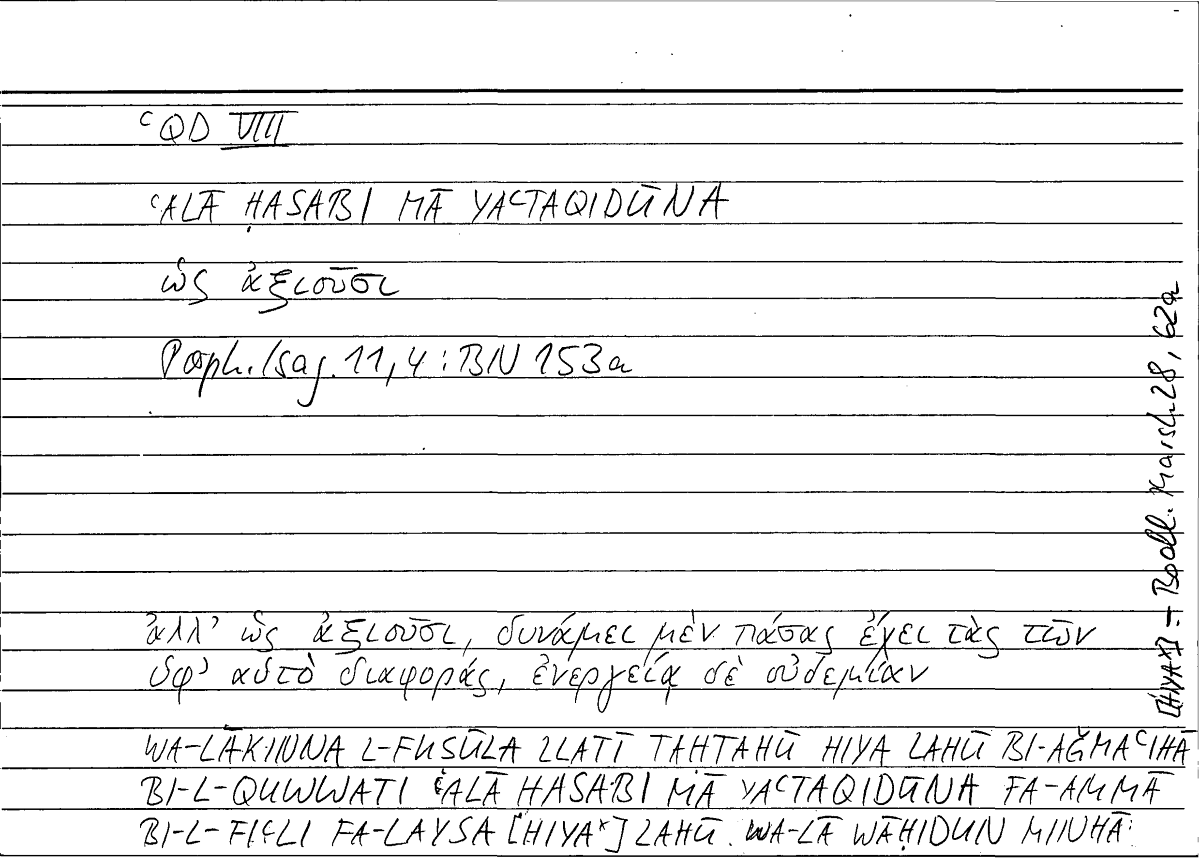 ʿQD VIII
ʿALĀ ḤASABI MĀ YAʿTAQIDŪNA
ὡς ἀξιοῦσι
Porph. Isag. 11,4 : BN 153a
ἀλλ' ὡς ἀξιοῦσι, δυνάμει μὲν πάσας ἔχει τὰς τῶν
ὑφ' αὑτὸ διαφοράς, ἐνεργείᾳ δὲ οὐδεμίαν
WA-LĀKINNA L-FUSŪLA LLATĪ TAHTAHŪ HIYA LAHŪ BI-AǦMAʿIHĀ
BI-L-QUWWATI ʿALĀ HASABI MĀ YAʿTAQIDŪNA FA-AMMĀ
BI-L-FIʿLI FA-LAYSA [HIYA*] LAHŪ. WA-LĀ WĀḤIDUN MINHĀ.
[HIYA*] = Bodl. Marsh. 28, 62a